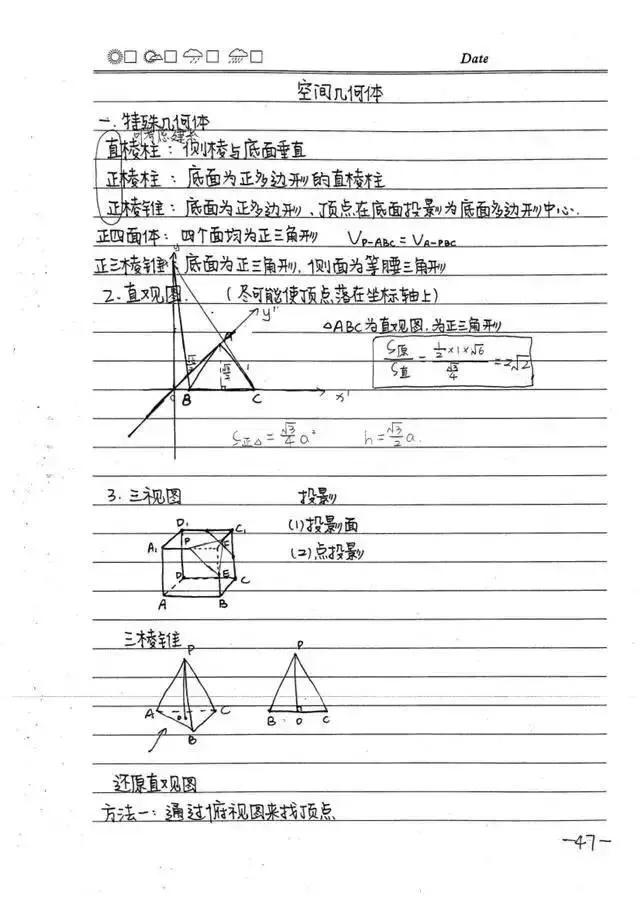 Date
空间几何体
一. 特殊几何体
可考虑建系
直棱柱：侧棱与底面垂直
正棱柱：底面为正多边形的直棱柱
正棱锥：底面为正多边形、顶点在底面投影为底面多边形中心.
正四面体：四个面均为正三角形 V_{P-ABC} = V_{A-PBC}
正三棱锥：底面为正三角形, 侧面为等腰三角形
2. 直观图. （尽可能使顶点落在坐标轴上）
y'
A
△ABC为直观图, 为正三角形
S原/S直 = (1/2 × 1 × √6)/(√3/4) = 2√2
B C x'
S正△ = √3/4 a² h = √3/2 a.
3. 三视图 投影
(1) 投影面
(2) 点投影
D₁ C₁
A₁ P F
D E C
A B
三棱锥
P P
A O C B O C
B
还原直观图
方法一：通过俯视图来找顶点
-47-